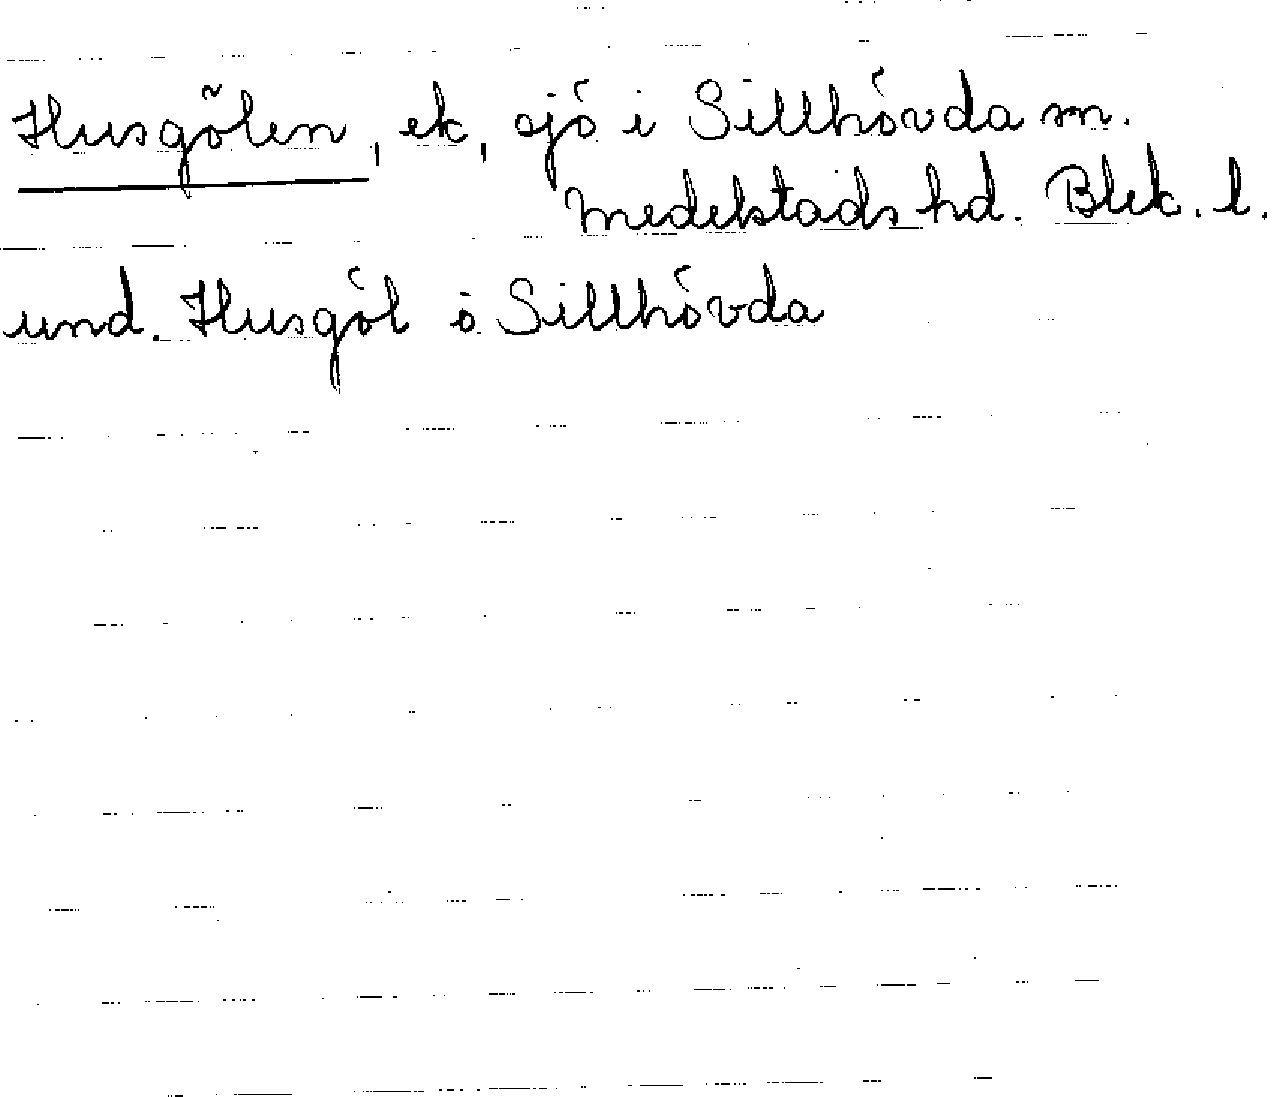 Husgölen, ek, sjö i Sillhövda sn.
Medelstads hd. Blek. l.
und. Husgöl ö. Sillhövda